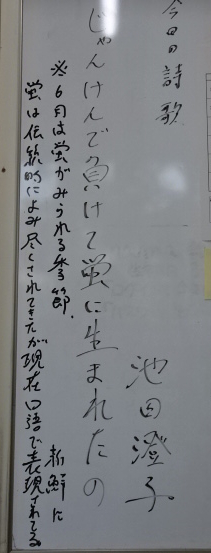 今日の詩歌
じゃんけんで負けて蛍に生まれたの
池田澄子
※6月は蛍がみられる季節。
蛍は伝統的によみ尽くされてきたが現在口語で表現されてる
新鮮に